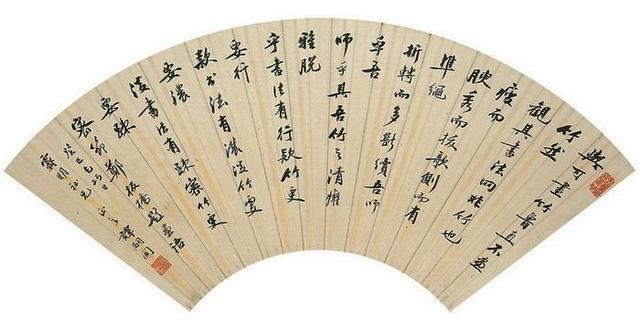 與可畫竹魯直不畫
竹然
觀其書法罔非竹也
瘦而
腴秀而拔欹側而有
準繩
折轉而多斷續吾師
乎吾
師乎其吾竹之清癯
雅脫
乎書法有行款竹更
要行
款書法有濃淡竹更
要濃
淡書法有疎密竹更
要疎
密節鄭板橋題畫語
癸巳
明社兄正之譚嗣同